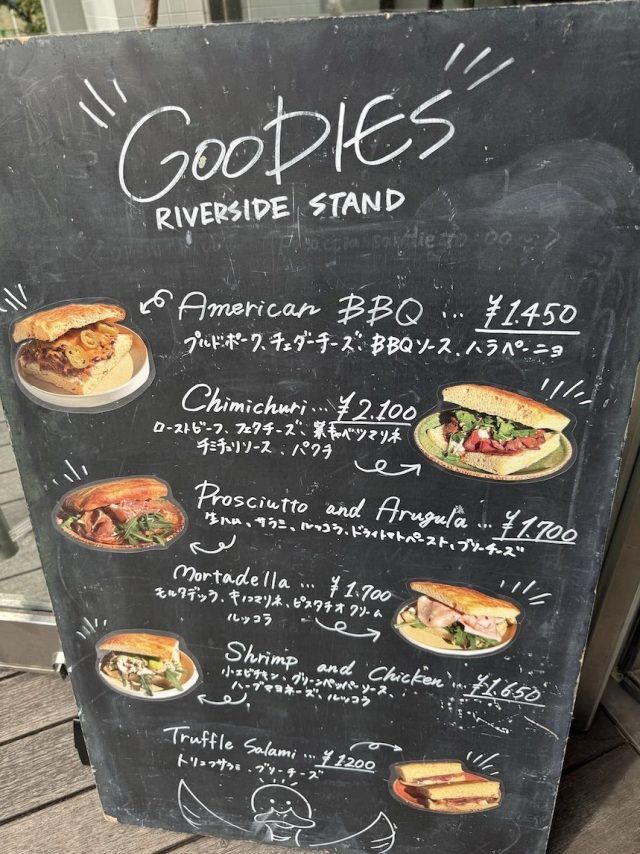 GOODIES
RIVERSIDE STAND
American BBQ ... ¥1.450
プルドポーク、チェダーチーズ、BBQソース、ハラペーニョ
Chimichuri ... ¥2.100
ローストビーフ、フェタチーズ、紫キャベツマリネ
チミチュリソース、パクチ
Prosciutto and Arugula ... ¥1.700
生ハム、サラミ、ルッコラ、ドライトマトペースト、ブリーチーズ
Mortadella ... ¥1.700
モルタデッラ、キノコマリネ、ピスタチオクリーム
ルッコラ
Shrimp and Chicken ... ¥1.650
小エビチキン、グリーンペッパーソース、
ハーブマヨネーズ、ルッコラ
Truffle Salami ... ¥1200
トリュフサラミ、ブリーチーズ